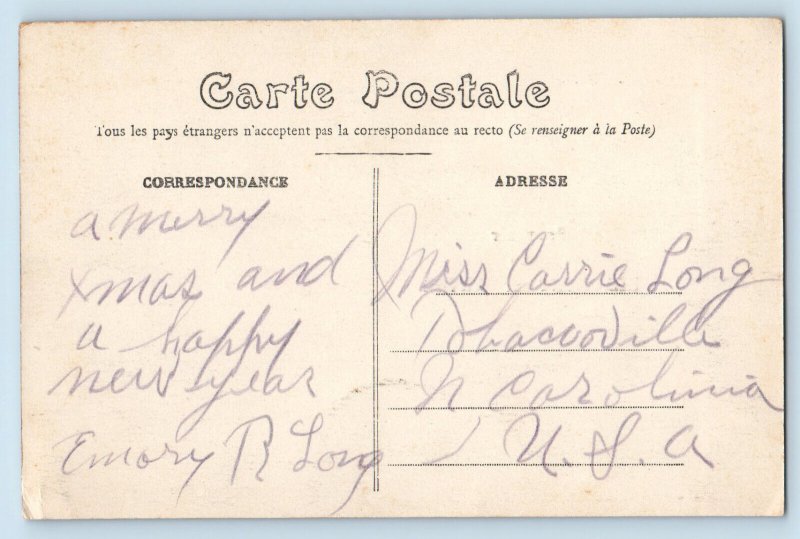 Carte Postale
Tous les pays étrangers n'acceptent pas la correspondance au recto (Se renseigner à la Poste)
CORRESPONDANCE
a merry
xmas and
a happy
new year
Emory R Long
ADRESSE
Miss Carrie Long
Tobaccoville
N Carolina
U.S.A